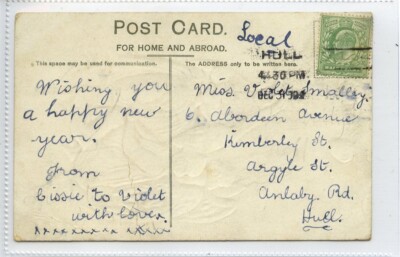 POST CARD.
FOR HOME AND ABROAD.
Local
This space may be used for communication.
The ADDRESS only to be written here.
HULL
4.30 PM
DEC 31
Wishing you
a happy new
year.
From
Cissie to Violet
with love.
Miss Violet Smalley.
6. Aberdeen Avenue
Kimberley St.
Argyle St.
Anlaby. Rd.
Hull.